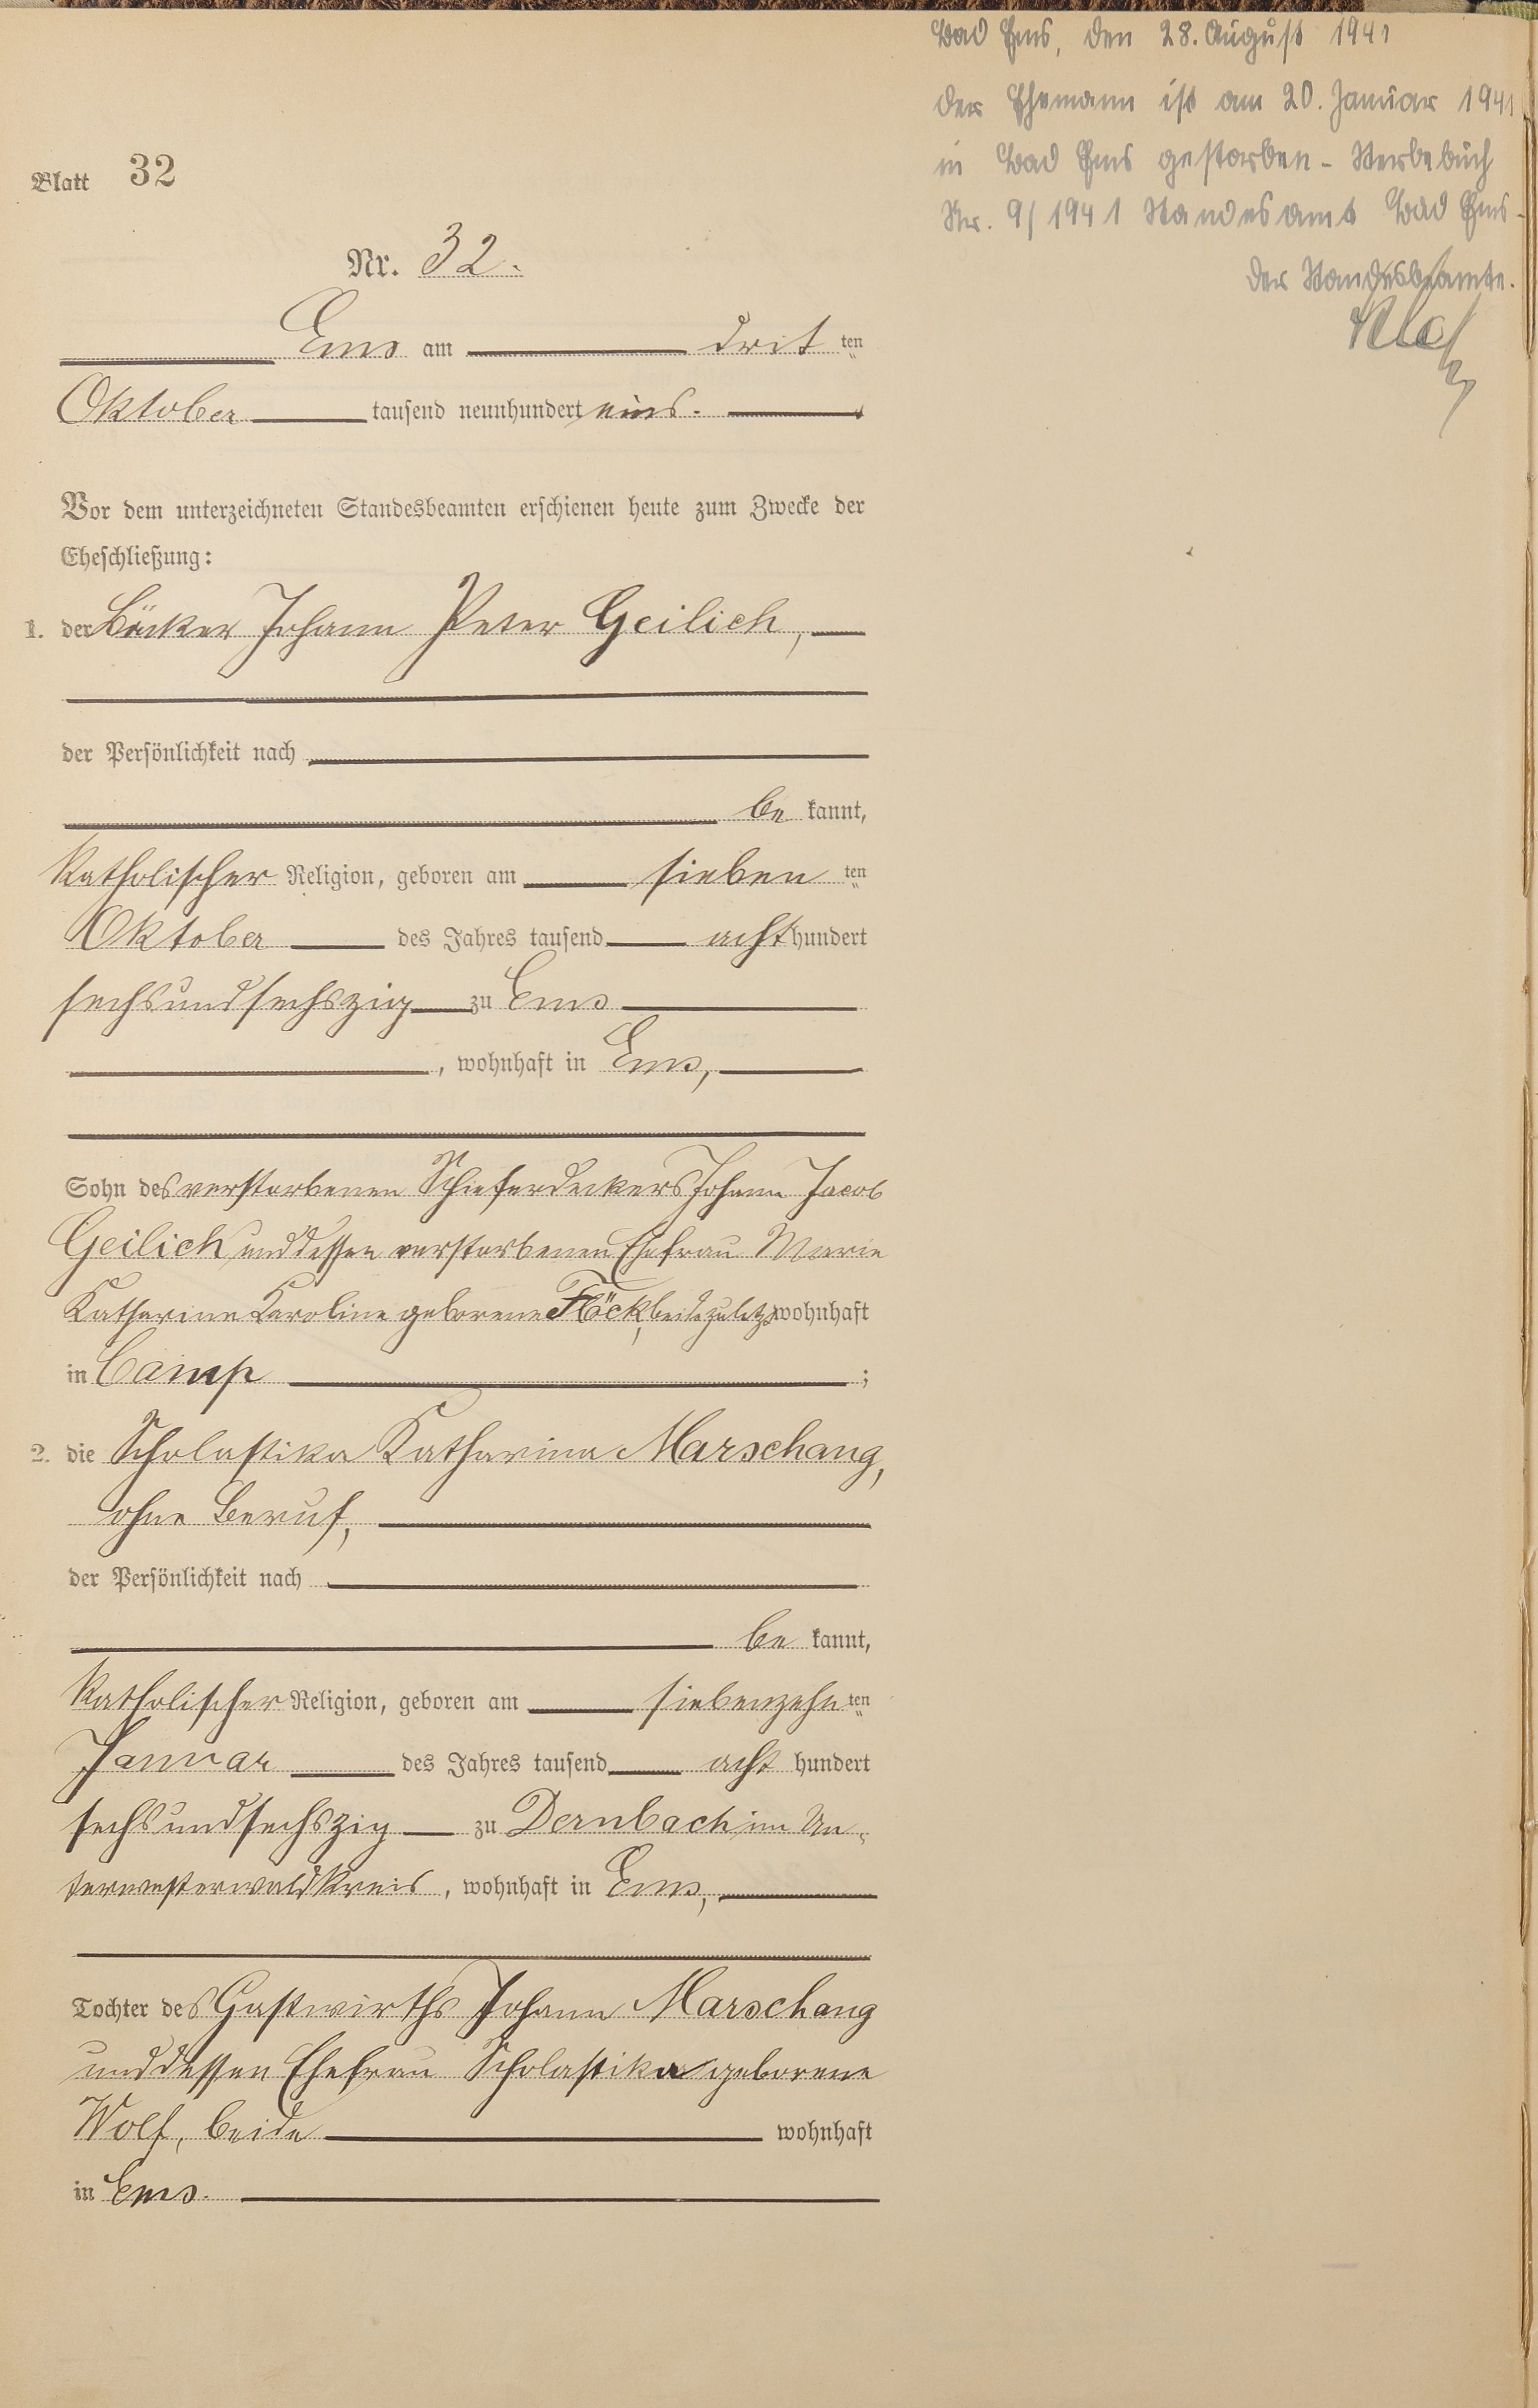 Blatt 32
Nr. 32.
Ems am drit ten
Oktober tausend neunhundert eins.
Vor dem unterzeichneten Standesbeamten erschienen heute zum Zwecke der
Eheschließung:
1. der Bäcker Johann Peter Geilich,
der Persönlichkeit nach
be kannt,
katholischer Religion, geboren am sieben ten
Oktober des Jahres tausend acht hundert
sechsundsechszig zu Ems
, wohnhaft in Ems,
Sohn des verstorbenen Schieferdeckers Johann Jacob
Geilich und dessen verstorbenen Ehefrau Marie
Katharine Karoline geborene Flöck, beide zuletzt wohnhaft
in Camp ;
2. die Scholastika Katharina Marschang,
ohne Beruf,
der Persönlichkeit nach
be kannt,
katholischer Religion, geboren am siebenzehn ten
Januar des Jahres tausend acht hundert
sechsundsechszig zu Dernbach im Un-
terwesterwaldkreis, wohnhaft in Ems,
Tochter des Gastwirths Johann Marschang
und dessen Ehefrau Scholastika geborene
Wolf, beide wohnhaft
in Ems.
Bad Ems, den 28. August 1941
Der Ehemann ist am 20. Januar 1941
in Bad Ems gestorben - Sterbebuch
Nr. 9/1941 Standesamt Bad Ems-
Der Standesbeamte.